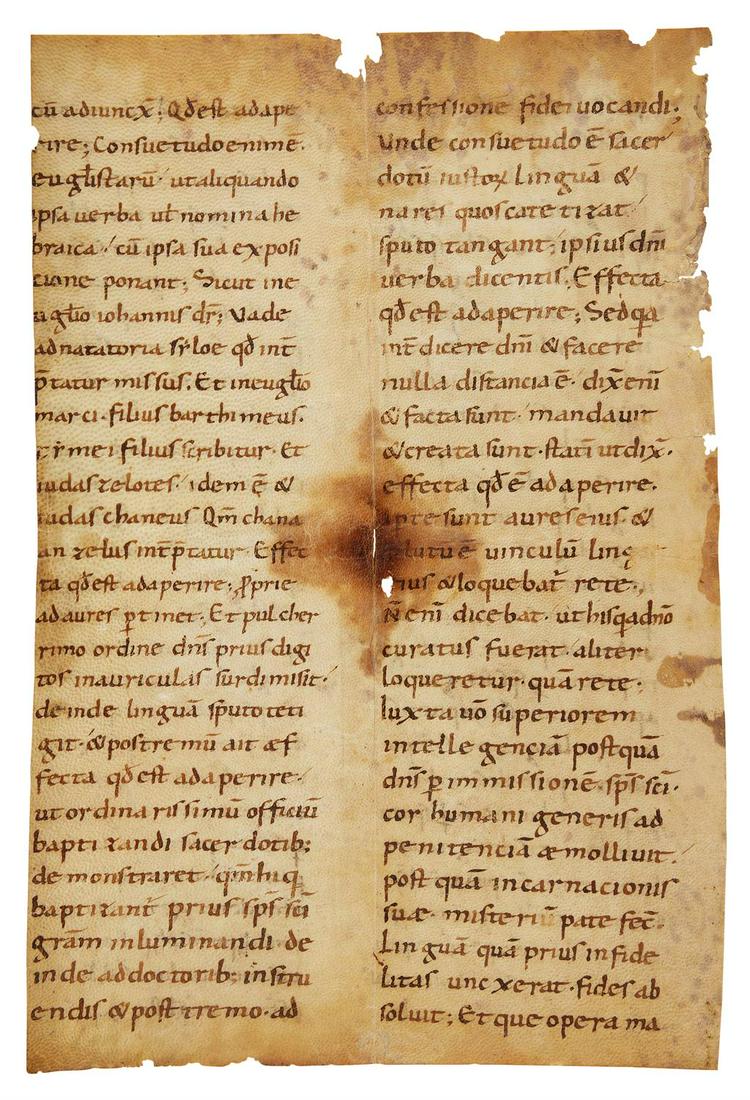 cū adiuncx̄; Qđ est adape
rire; Consuetudo enim ē.
euglīstarū. ut aliquando
ipsa uerba ul̄ nomina he
braica. cū ipsa sua exposi
cione ponant; Sicut in e
uglīo iohannis dr̄; Uade
ad natatoria syloe qđ int̄
p̄tatur missus. Et in euglīo
marci. filius barthimeus.
tymei filius scribitur. Et
iudas zelotes. idem ē &
iudas chaneus Qm̄ chana
an zelus int̄p̄tatur. Effec
ta qđ est adaperire; ꝓprie
ad aures ꝑtinet; Et pulcher
rimo ordine dn̄s prius digi
tos in auriculas surdi misit.
deinde linguā sputo teti
git. & postremū ait æf
fecta qđ est adaperire.
ut ordinarissimū officiū
baptizandi sacerdotib;
demonstraret. qm̄ hi q
baptizant̄ prius sp̄s sc̄i
grām inluminandi. de
inde ad doctorib; instru
endis & postremo. ad
confessione fidei uocandi.
Unde consuetudo ē sacer
dotū iustoꝝ linguā &
nares quos catetizat
sputo tangant. ipsius dn̄i
uerba dicentis. Effecta
qđ est adaperire; Sed q̄a
int̄ dicere dn̄i & facere
nulla distancia ē. dix̄ enī
& facta sunt. mandauit
& creata sunt. statī ut dix̄.
effecta qđ ē adaperire.
aperte sunt aures eius. &
solutū ē uinculū ling
eius & loquebat̄ rete.
N̄ enī dicebat. ut hi sq̄ a dn̄o
curatus fuerat. aliter
loqueretur. quā rete.
Iuxta uō superiorem
intellegenciā postquā
dn̄s ꝑ immissionē sp̄s sc̄i.
cor humani generis ad
penitenciā æmolliuit.
postquā incarnacionis
suæ. misteriū patefec̄.
Linguā quā prius infide
litas uncxerat. fides ab
soluit; Et que opera ma